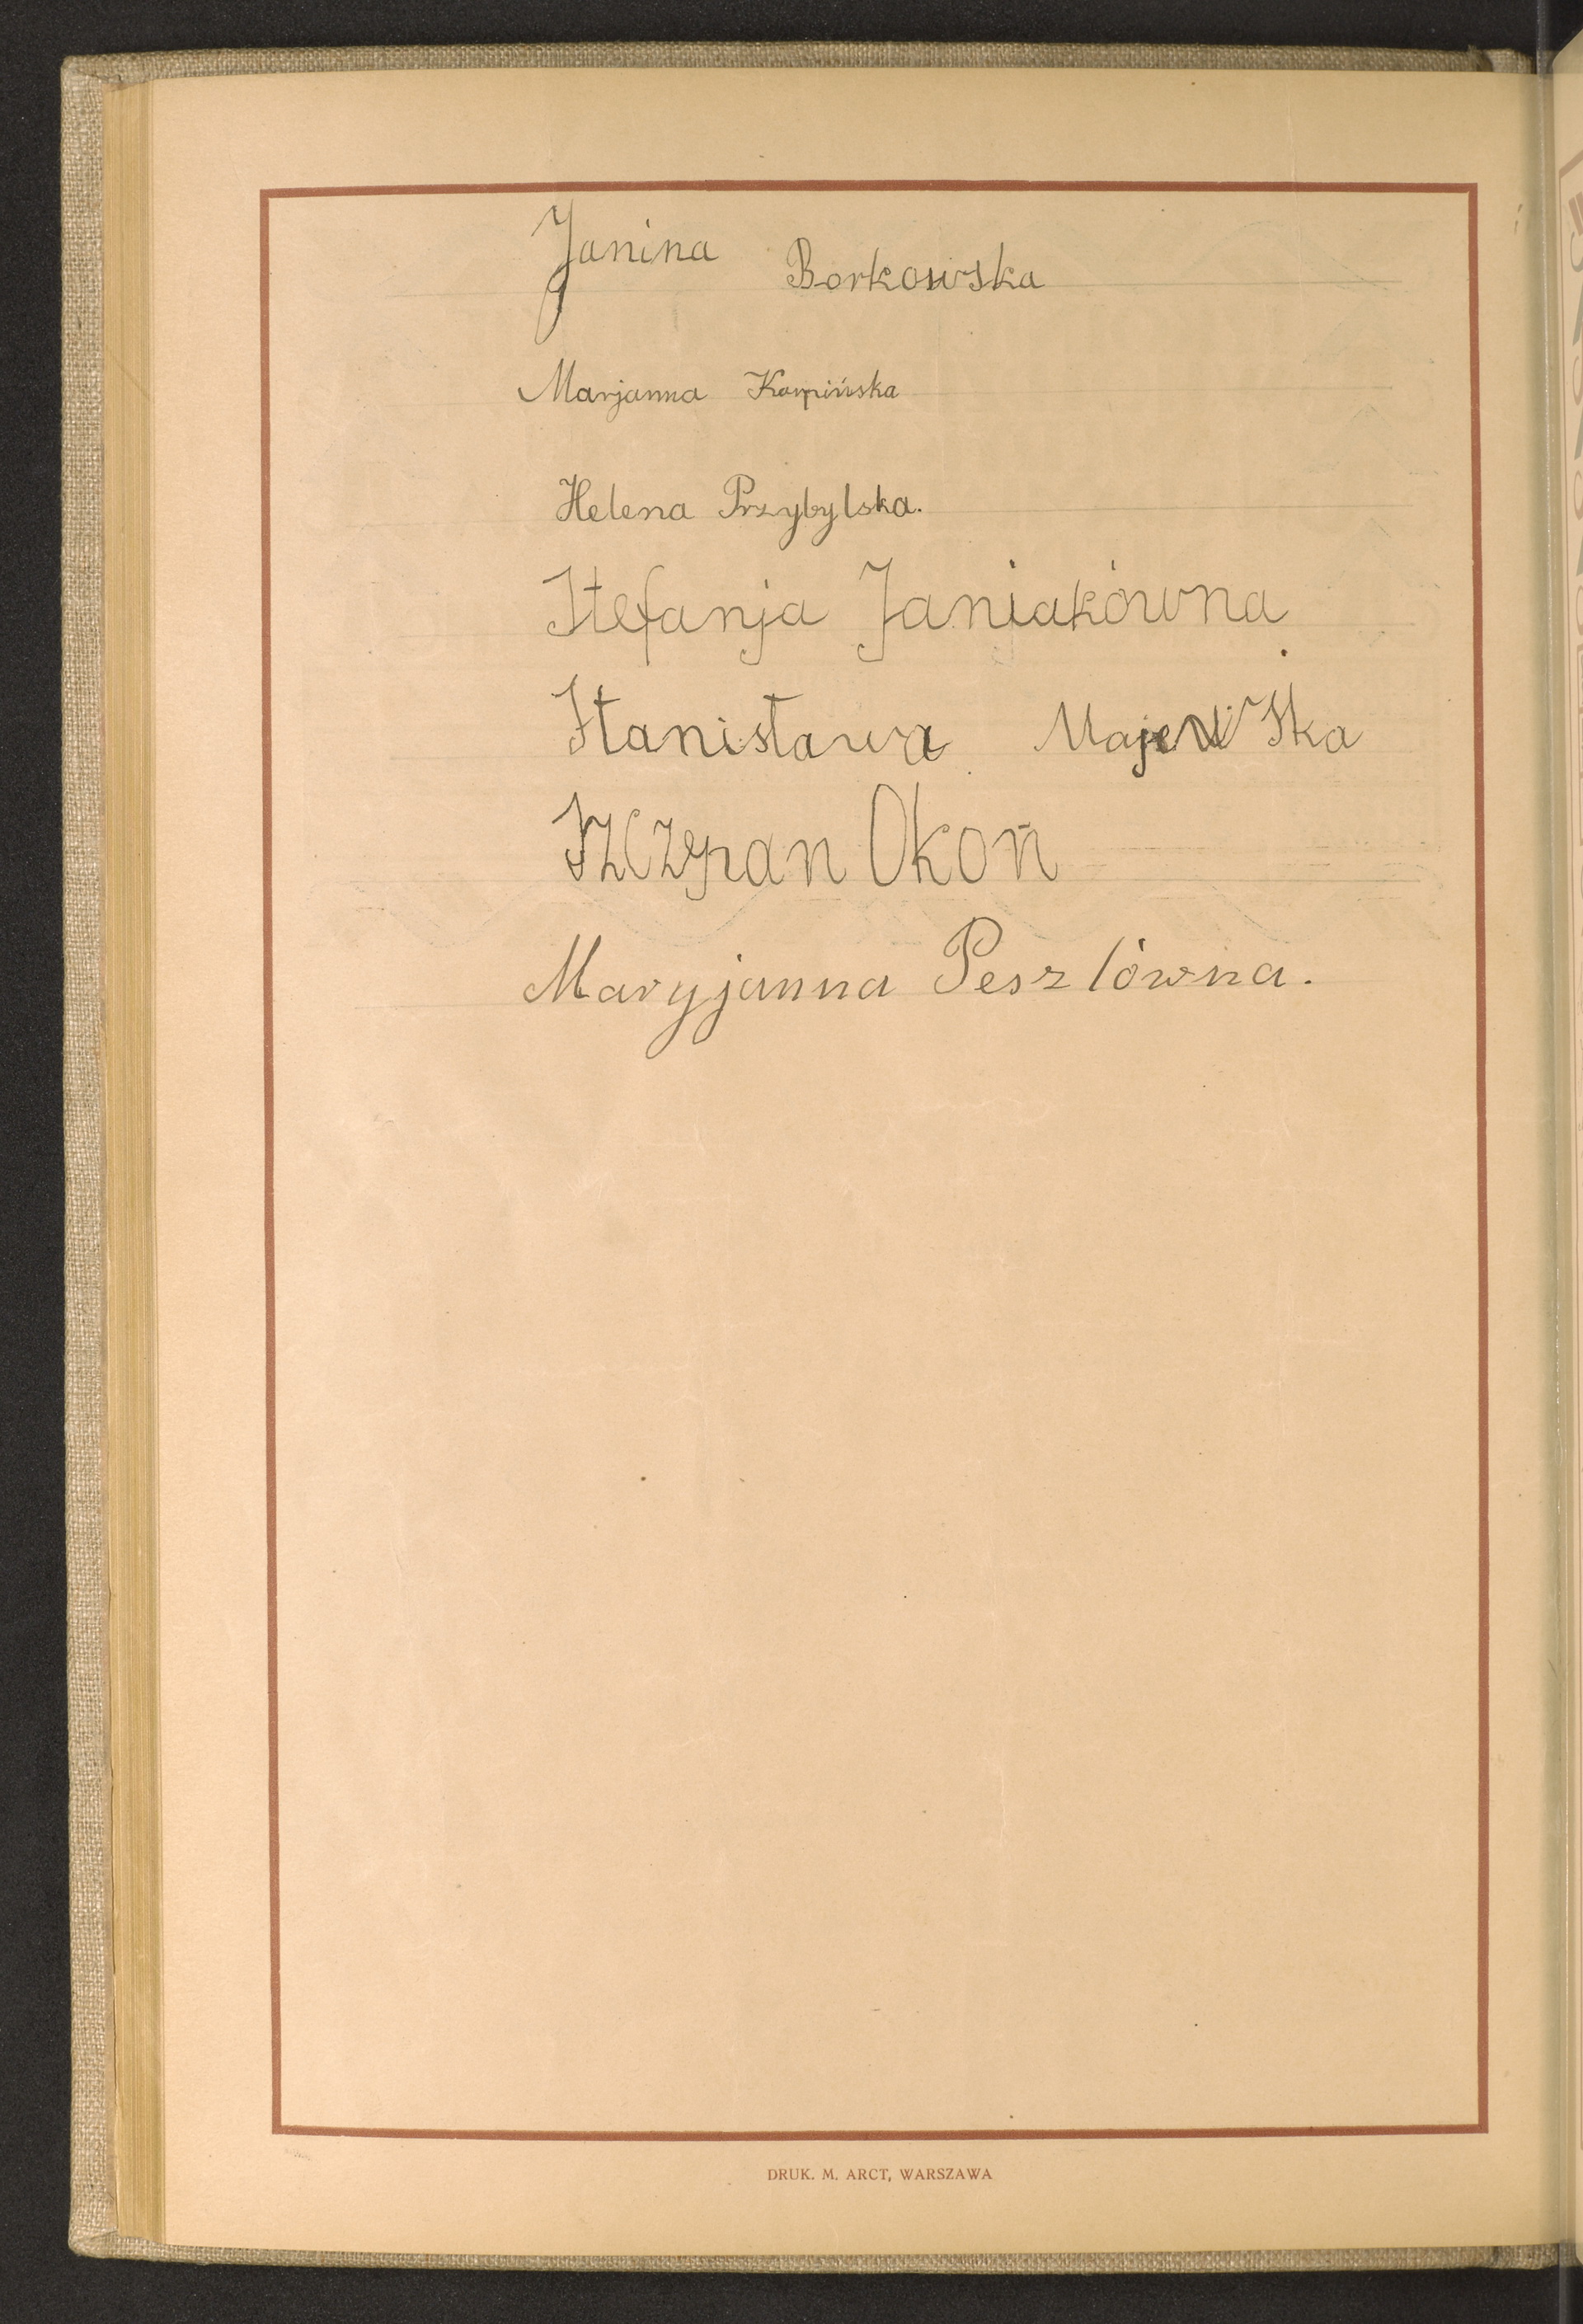 Janina Borkowska
Marjanna Kampińska
Helena Przybylska.
Stefanja Janiakówna
Stanisława Majewska
Szczepan Okoń
Maryjanna Peszlówna.
DRUK. M. ARCT, WARSZAWA